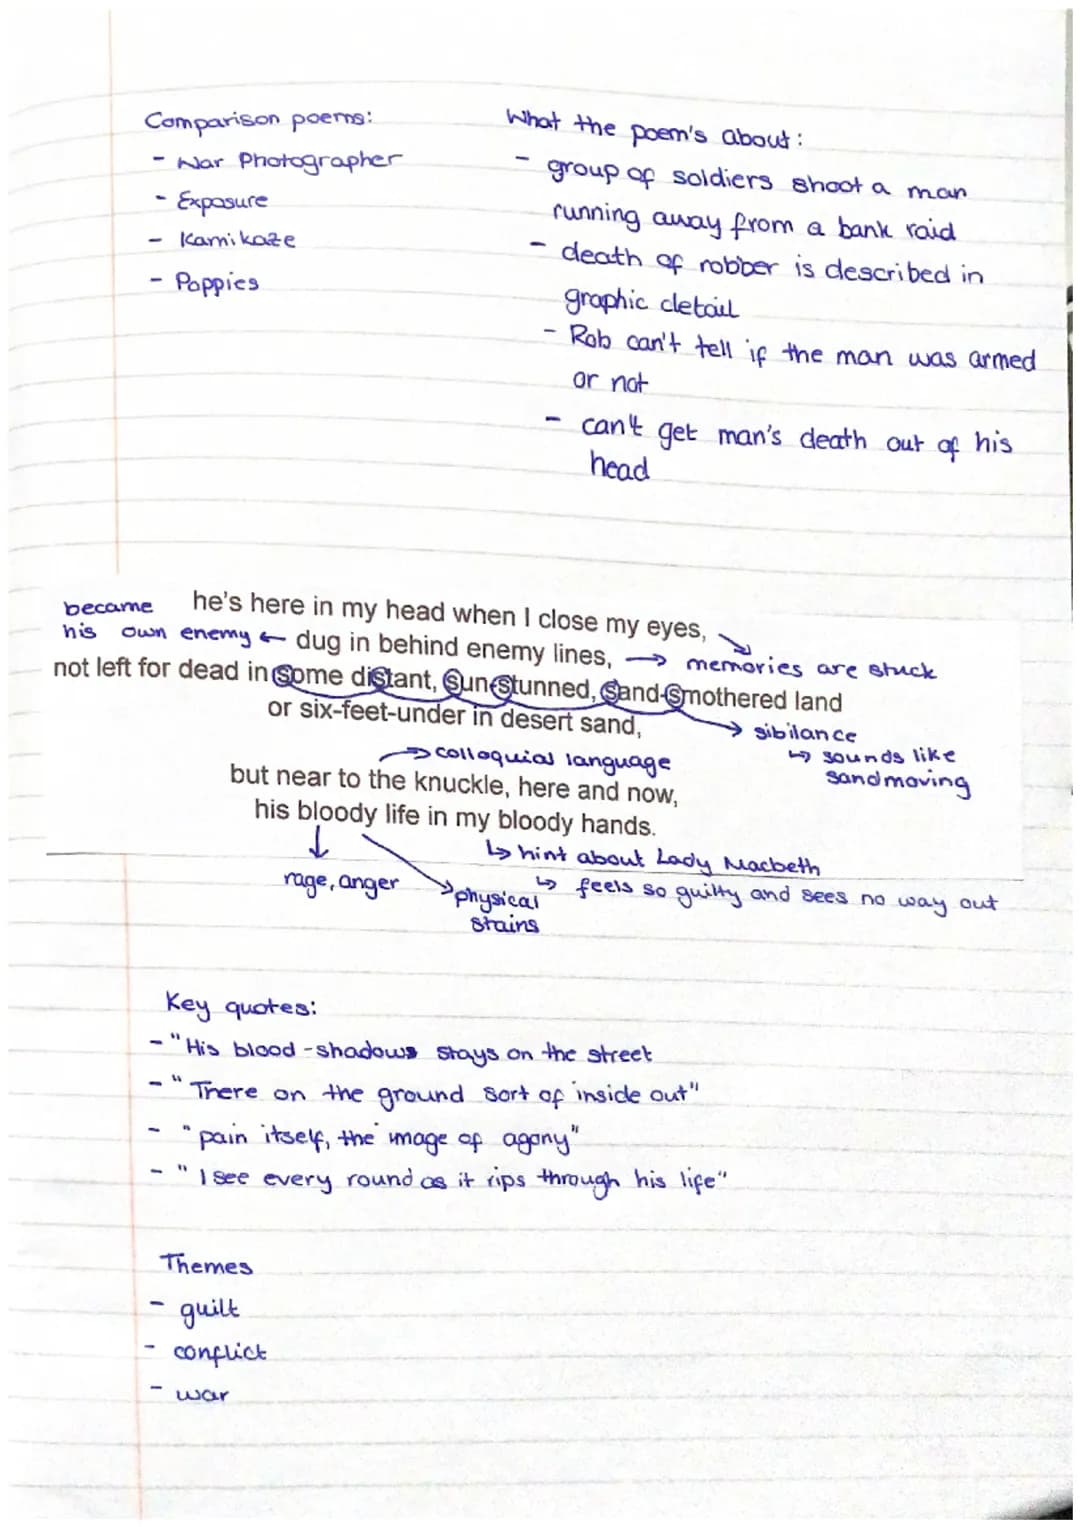 Comparison poems:
- War Photographer
- Exposure
- Kamikaze
- Poppies
What the poem's about:
- group of soldiers shoot a man
running away from a bank raid
- death of robber is described in
graphic detail
- Rob can't tell if the man was armed
or not
- can't get man's death out of his
head
he's here in my head when I close my eyes,
became
his own enemy ← dug in behind enemy lines, → memories are stuck
not left for dead in some distant, sun-stunned, sand-smothered land
or six-feet-under in desert sand,
→ sibilance
↳ sounds like
sand moving
→ colloquial language
but near to the knuckle, here and now,
his bloody life in my bloody hands.
↓
rage, anger
physical
stains
↳ hint about Lady Macbeth
↳ feels so guilty and sees no way out
Key quotes:
- "His blood-shadows stays on the street
- "There on the ground sort of inside out"
- "pain itself, the image of agony"
- "I see every round as it rips through his life"
Themes
- guilt
- conflict
- war